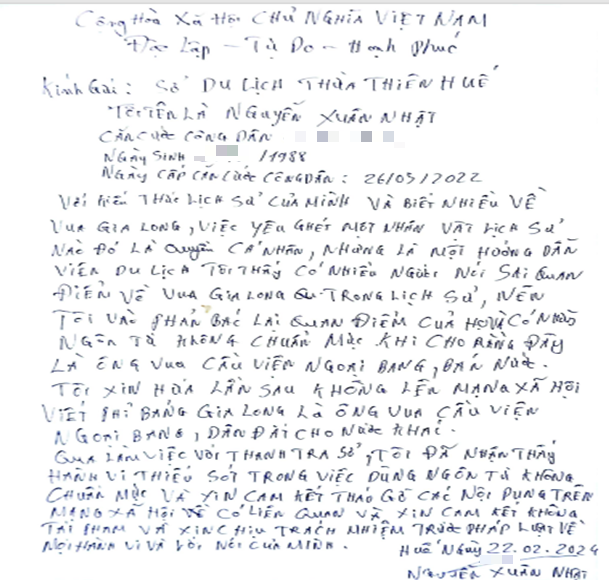 Cộng Hòa Xã Hội Chủ NGHĨA VIỆT NAM
Độc Lập - Tự Do - Hạnh Phúc
Kính Gửi: SỞ DU LỊCH THỪA THIÊN HUẾ
TÔI TÊN LÀ NGUYỄN XUÂN NHẬT
CĂN CƯỚC CÔNG DÂN
NGÀY SINH /1988
NGÀY CẤP CĂN CƯỚC CÔNG DÂN: 26/05/2022
Với kiến THỨC LỊCH SỬ CỦA MÌNH VÀ BIẾT NHIỀU VỀ
VUA GIA LONG, VIỆC YÊU GHÉT MỘT NHÂN VẬT LỊCH SỬ
NÀO ĐÓ LÀ QUYỀN CÁ NHÂN, NHƯNG LÀ MỘT HƯỚNG DẪN
VIÊN DU LỊCH TÔI THẤY CÓ NHIỀU NGƯỜI NÓI SAI QUAN
ĐIỂN VỀ VUA GIA LONG TRONG LỊCH SỬ, NÊN
TÔI VÀO PHẢN BÁC LẠI QUAN ĐIỂM CỦA HỌ VÀ CÓ NHỮNG
NGÔN TỪ KHÔNG CHUẨN MỰC KHI CHO RẰNG ĐÂY
LÀ ÔNG VUA CẦU VIỆN NGOẠI BANG, BÁN NƯỚC.
TÔI XIN HỨA LẦN SAU KHÔNG LÊN MẠNG XÃ HỘI
VIẾT PHỈ BÁNG GIA LONG LÀ ÔNG VUA CẦU VIỆN
NGOẠI BANG, DÂN ĐẤT CHO NƯỚC KHÁC.
QUA LÀM VIỆC VỚI THANH TRA SỞ, TÔI ĐÃ NHẬN THẤY
HÀNH VI THIẾU SÓT TRONG VIỆC DÙNG NGÔN TỪ KHÔNG
CHUẨN MỰC VÀ XIN CAM KẾT THÁO GỠ CÁC NỘI DUNG TRÊN
MẠNG XÃ HỘI VỀ CÓ LIÊN QUAN VÀ XIN CAM KẾT KHÔNG
TÁI PHẠM VÀ XIN CHỊU TRÁCH NHIỆM TRƯỚC PHÁP LUẬT VỀ
MỌI HÀNH VI VÀ LỜI NÓI CỦA MÌNH.
HUẾ NGÀY 22.02.2024
NGUYỄN XUÂN NHẬT